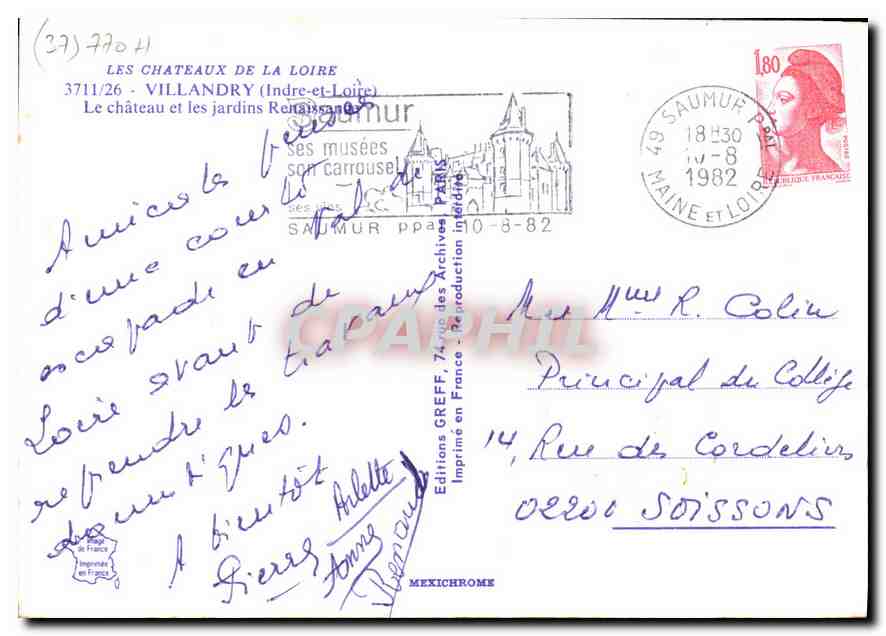 (37) 770 H
LES CHATEAUX DE LA LOIRE
3711/26 - VILLANDRY (Indre-et-Loire)
Le château et les jardins Renaissance
Saumur
ses musées
son carrousel
ses vins
SAUMUR ppal 10-8-82
49 SAUMUR Ppal
18H30
10-8
1982
MAINE ET LOIRE
1,80
REPUBLIQUE FRANÇAISE
Amicales pensées
d'une courte
escapade en Val de
Loire avant de
reprendre les travaux
domestiques.
A bientôt
Pierre Arlette
Anne
Renaud
Editions GREFF, 74 rue des Archives, PARIS
Imprimé en France - Reproduction interdite
Mr Mme R. Colin
Principal du Collège
14, Rue des Cordeliers
02200 SOISSONS
Image
de France
Imprimée
en France
MEXICHROME
CPAPHIL